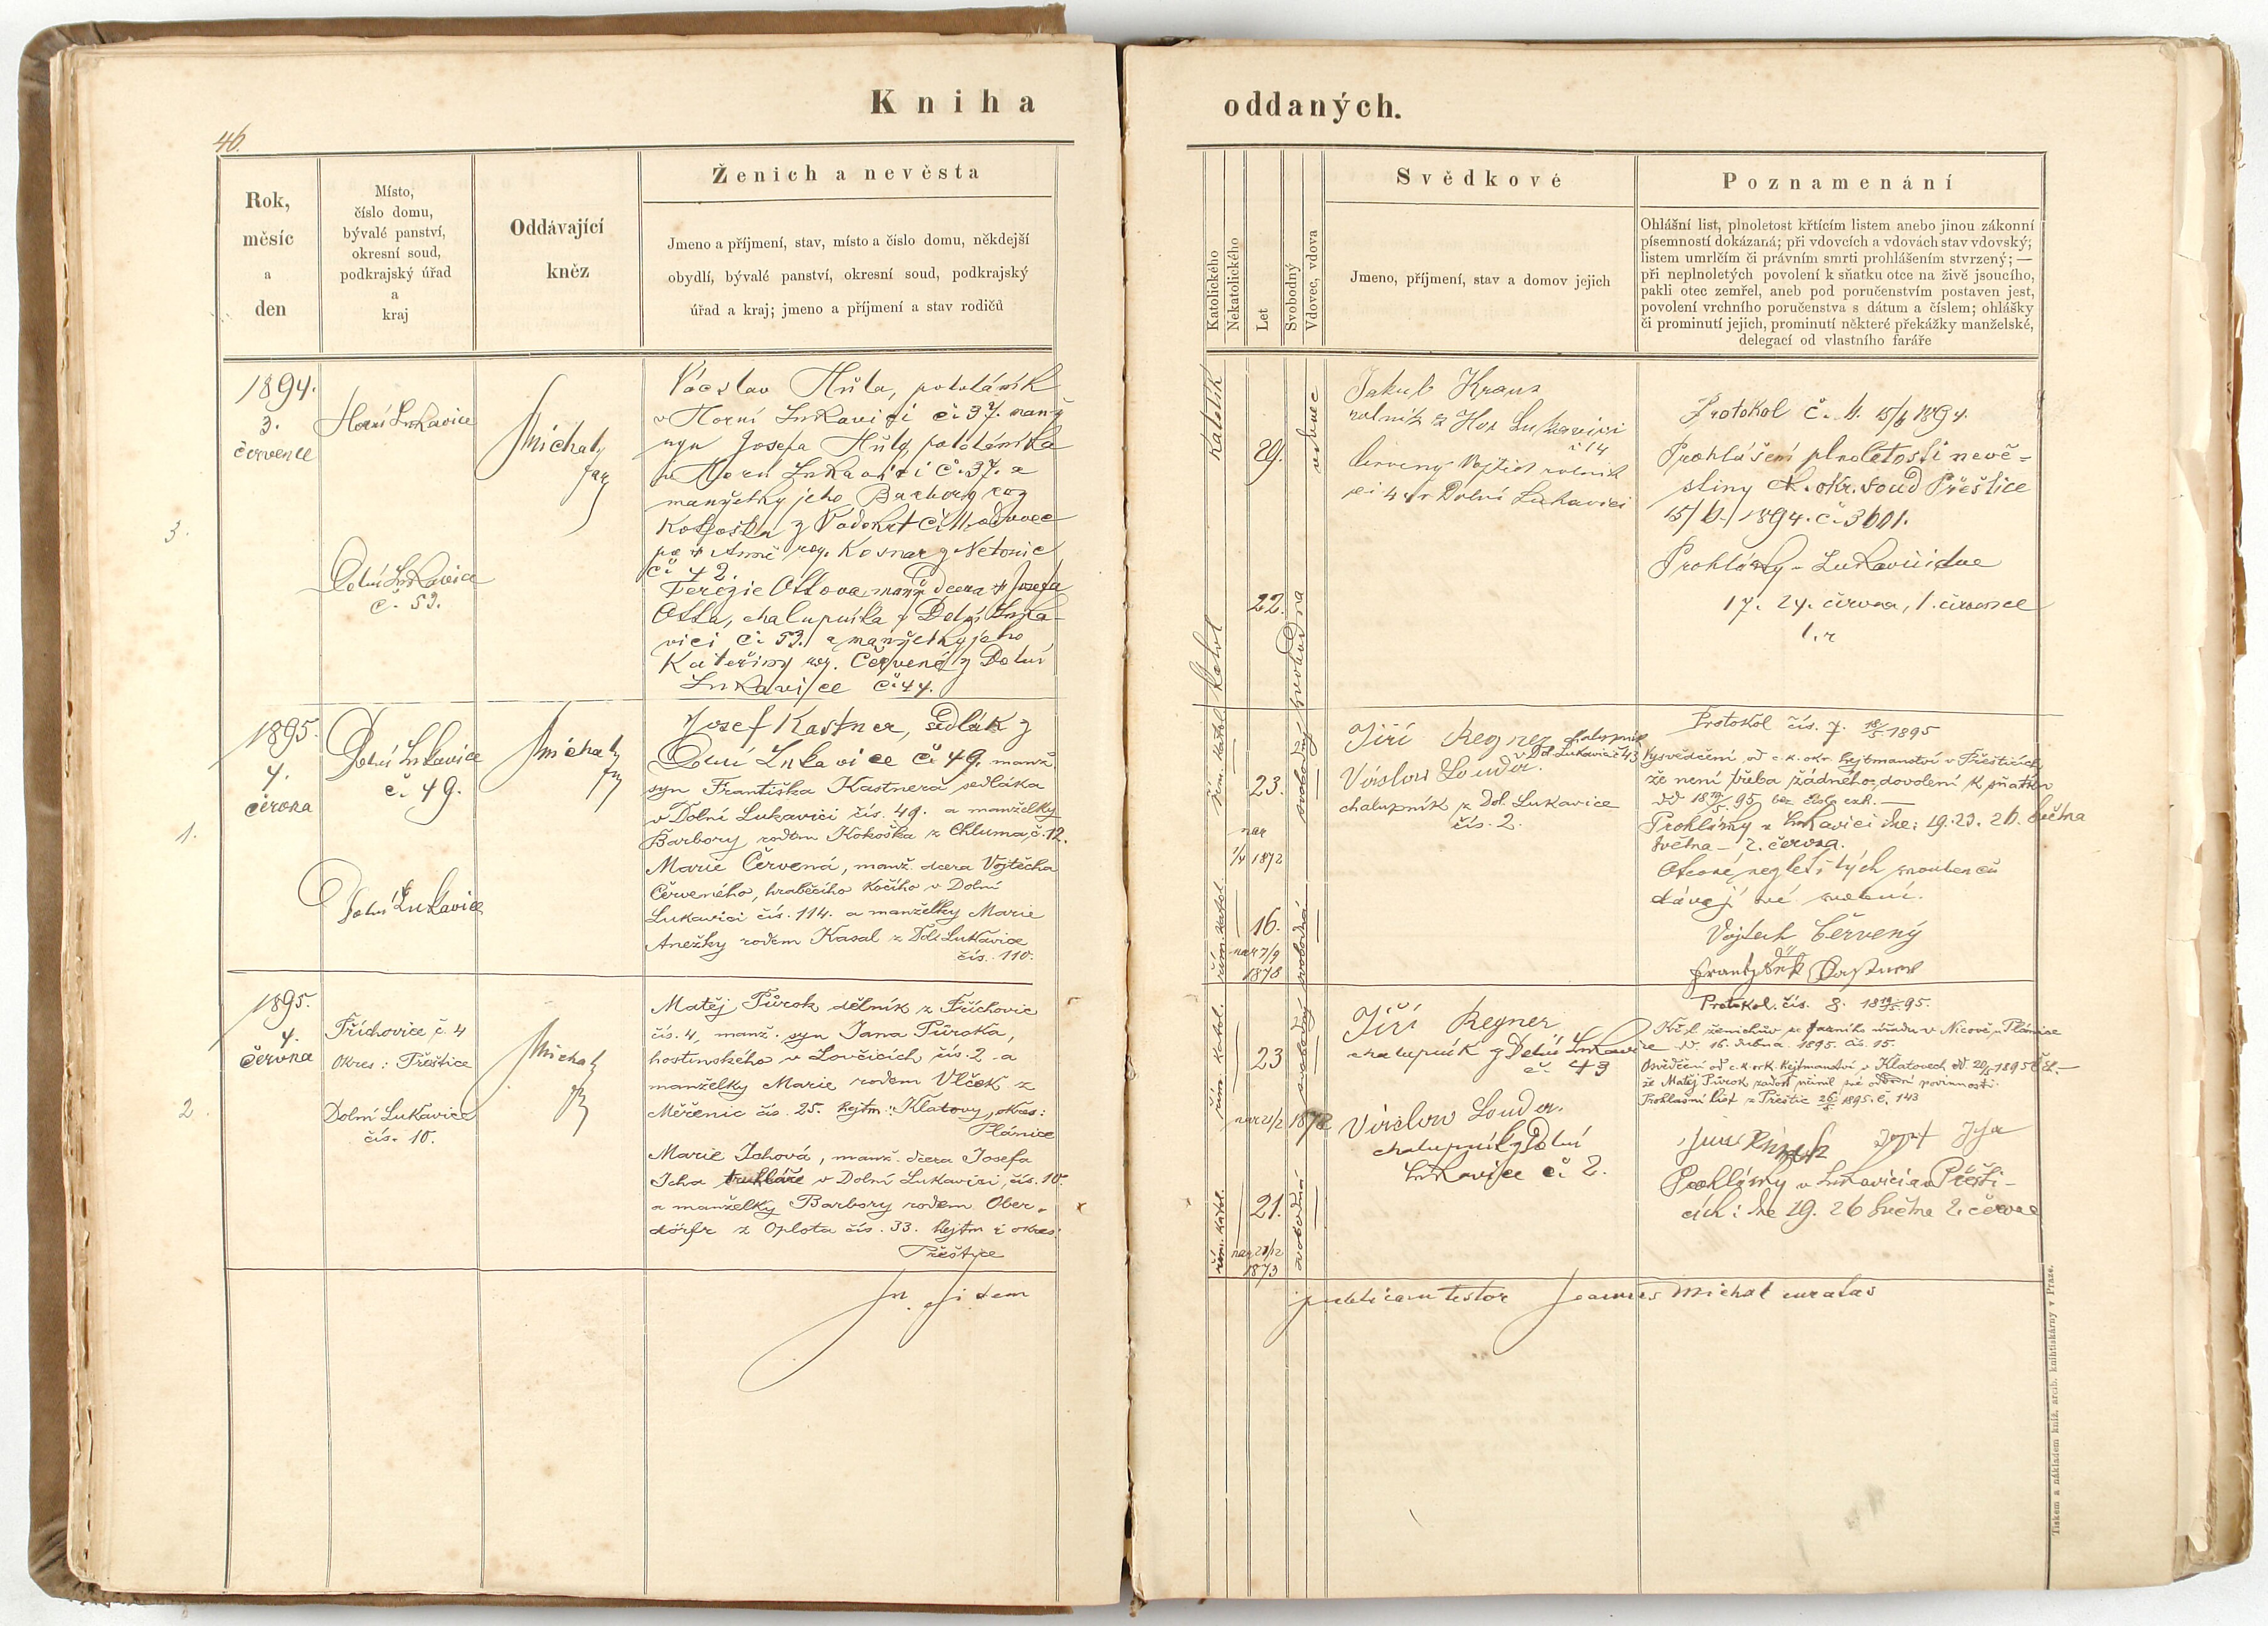 Kniha
oddaných.
46.
Rok,
měsíc
a
den
Místo,
číslo domu,
bývalé panství,
okresní soud,
podkrajský úřad
a
kraj
Oddávající
kněz
Ženich a nevěsta
Jmeno a příjmení, stav, místo a číslo domu, někdejší
obydlí, bývalé panství, okresní soud, podkrajský
úřad a kraj; jmeno a příjmení a stav rodičů
Katolického
Nekatolického
Let
Svobodný
Vdovec, vdova
Svědkové
Jmeno, příjmení, stav a domov jejich
Poznamenání
Ohlášní list, plnoletost křtícím listem anebo jinou zákonní
písemností dokázaná; při vdovcích a vdovách stav vdovský;
listem umrlčím či právním smrti prohlášením stvrzený; —
při neplnoletých povolení k sňatku otce na živě jsoucího,
pakli otec zemřel, aneb pod poručenstvím postaven jest,
povolení vrchního poručenstva s dátum a číslem; ohlášky
či prominutí jejich, prominutí některé překážky manželské,
delegací od vlastního faráře
3.
1894.
3.
července
Horní Lukavice
Dolní Lukavice
č. 53.
Michal
far
Václav Hůla, pololáník
v Horní Lukavici č. 37. manž
syn Josefa Hůly, pololáníka
v Horní Lukavici č. 37. a
manželky jeho Barbory roz
z Vodokrt č. 11. vdovec
po + Anně roz. z Netonic
č. 42.
Terezie Ottova, manž dcera + Josefa
Otta, chalupníka z Dolní Luka-
vici č. 53. a manželky jeho
Kateřiny roz. Červené z Dolní
Lukavice č. 44.
Katolík
29.
vdovec
katol
22.
svobodna
Jakub Kraus
rolník z Hor Lukavici
č 14
Vojtěch rolník
v Dolní Lukavici
Protokol č. 6. 15/6 1894.
Prohlášení plnoletosti nevě-
stiny ok. okr. soud Přeštice
15/6. 1894. č. 3601.
Prohlášky v Lukavici dne
17. 24. června, 1. července
l. r
1.
1895.
4.
června
Dolní Lukavice
č. 49.
Dolní Lukavice
Michal
far
Josef Kastner, sedlák z
Dolní Lukavice č. 49. manž.
syn Františka Kastnera sedláka
v Dolní Lukavici čís. 49. a manželky
Barbory rodem Kokoška z Chluma, č. 12.
Marie Červená, manž. dcera Vojtěcha
Červeného, hraběcího kočího v Dolní
Lukavici čís. 114. a manželky Marie
Anežky rodem Kasal z Dol. Lukavice
čís. 110.
řím. katol.
23.
nar
1/4 1872
svobodný
řím. katol.
16.
nar 7/9
1878
svobodná
Jiří Regner chalupník
v Dol. Lukavici č 43
Václav Louda.
chalupník z Dol. Lukavice
čís. 2.
Protokol čís. 7. 18/5 1895
Vysvědčení od c. k. okr. hejtmanství v Přešticích,
že není třeba žádného dovolení k sňatku
dd 18 19/5. 95 bez čísla exh. —
Prohlášky v Lukavici dne: 19. 23. 26. května
května — 2. června.
Otcové nezletilých snoubenců
dávají své svolení.
Vojtech Červený
2.
1895.
4.
června
Příchovice, č. 4
Okres: Přeštice
Dolní Lukavice
čís. 10.
Michal
Matěj Půrok dělník z Příchovic
čís. 4, manž. syn Jana Půroka,
hostinského v Lovčicích čís. 2. a
manželky Marie rodem Vlček z
Měčenic čís. 25. hejtm: Klatovy, okres:
Plánice
Marie Ichová, manž. dcera Josefa
Icha truhláře v Dolní Lukavici, čís. 10.
a manželky Barbory rodem Ober-
dörfr z Oplota čís. 33. hejtm i okres:
Přeštice
řím. katol.
23
nar 21/2 1872
svobodný
řím. katol.
21.
nar 21/12
1873
svobodná
Jiří Regner
chalupník z Dolní Lukavice
č. 43
Václav Louda.
chalupník z Dolní
Lukavice č. 2.
Protokol. čís. 8. 18 19/5 95.
Křl. ženichův ze farního úřadu v Nicově, u Plánice
dd. 16. dubna 1895. čís. 15.
Osvědčení od c. k. okr. hejtmanství v Klatovech dd. 20/5 1895
že Matěj Půrok zadost učinil své odvodní povinnosti.
Prohlašní list z Přeštic 26/5 1895. č. 143
Prohlášky v Lukavici a v Přešti-
cích: dne 19. 26 května 2. června
In fidem
publicam testor Joannes Michal curatus
Tiskem a nákladem kníž. arcib. knihtiskárny v Praze.